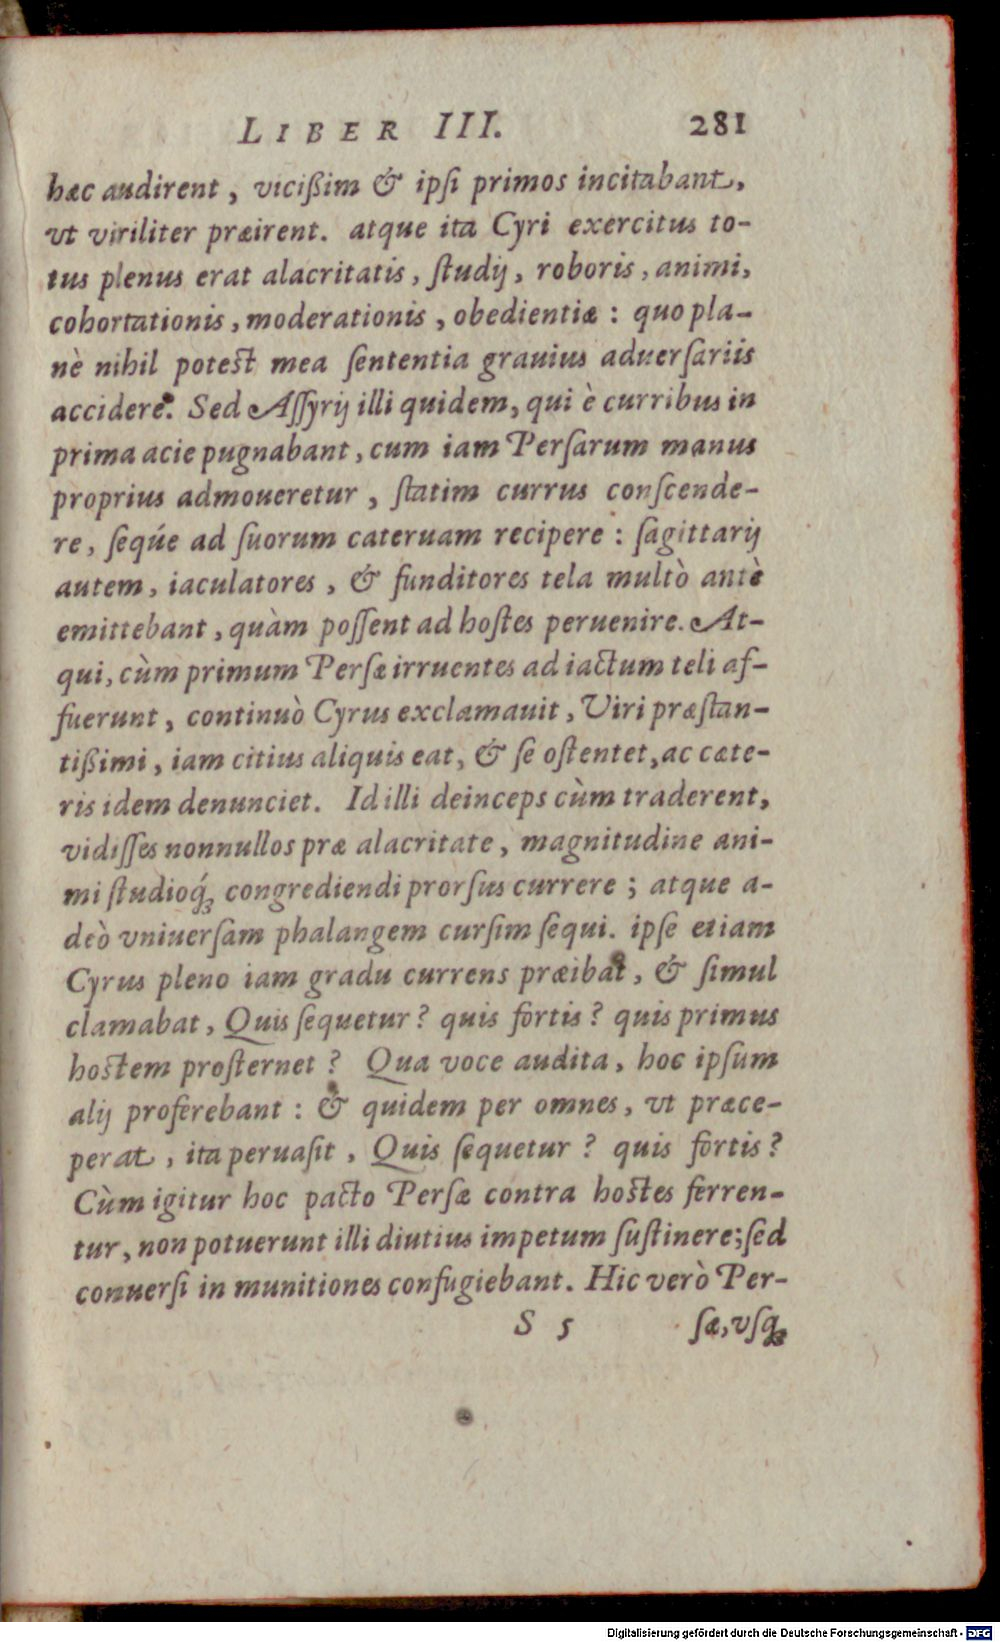 LIBER III. 281
hæc audirent, viciſſim & ipſi primos incitabant,
vt viriliter præirent. atque ita Cyri exercitus to-
tus plenus erat alacritatis, ſtudij, roboris, animi,
cohortationis, moderationis, obedientiæ: quo pla-
nè nihil potest mea ſententia grauius aduerſariis
accidere. Sed Aſſyrij illi quidem, qui è curribus in
prima acie pugnabant, cum iam Perſarum manus
proprius admoueretur, ſtatim currus conſcende-
re, ſeqúe ad ſuorum cateruam recipere: ſagittarij
autem, iaculatores, & funditores tela multò antè
emittebant, quàm poſſent ad hoſtes peruenire. At-
qui, cùm primum Perſæ irruentes ad iactum teli af-
fuerunt, continuò Cyrus exclamauit, Viri præſtan-
tißimi, iam citius aliquis eat, & ſe oſtentet, ac cæte-
ris idem denunciet. Id illi deinceps cùm traderent,
vidiſſes nonnullos præ alacritate, magnitudine ani-
mi ſtudioq́; congrediendi prorſus currere; atque a-
deò vniuerſam phalangem curſim ſequi. ipſe etiam
Cyrus pleno iam gradu currens præibat, & ſimul
clamabat, Quis ſequetur? quis fortis? quis primus
hostem proſternet? Qua voce audita, hoc ipſum
alij proferebant: & quidem per omnes, vt præce-
perat, ita peruaſit, Quis ſequetur? quis fortis?
Cùm igitur hoc pacto Perſæ contra hostes ferren-
tur, non potuerunt illi diutius impetum ſuſtinere; ſed
conuerſi in munitiones confugiebant. Hic verò Per-
S 5 ſæ, vſq;
Digitalisierung gefördert durch die Deutsche Forschungsgemeinschaft - DFG